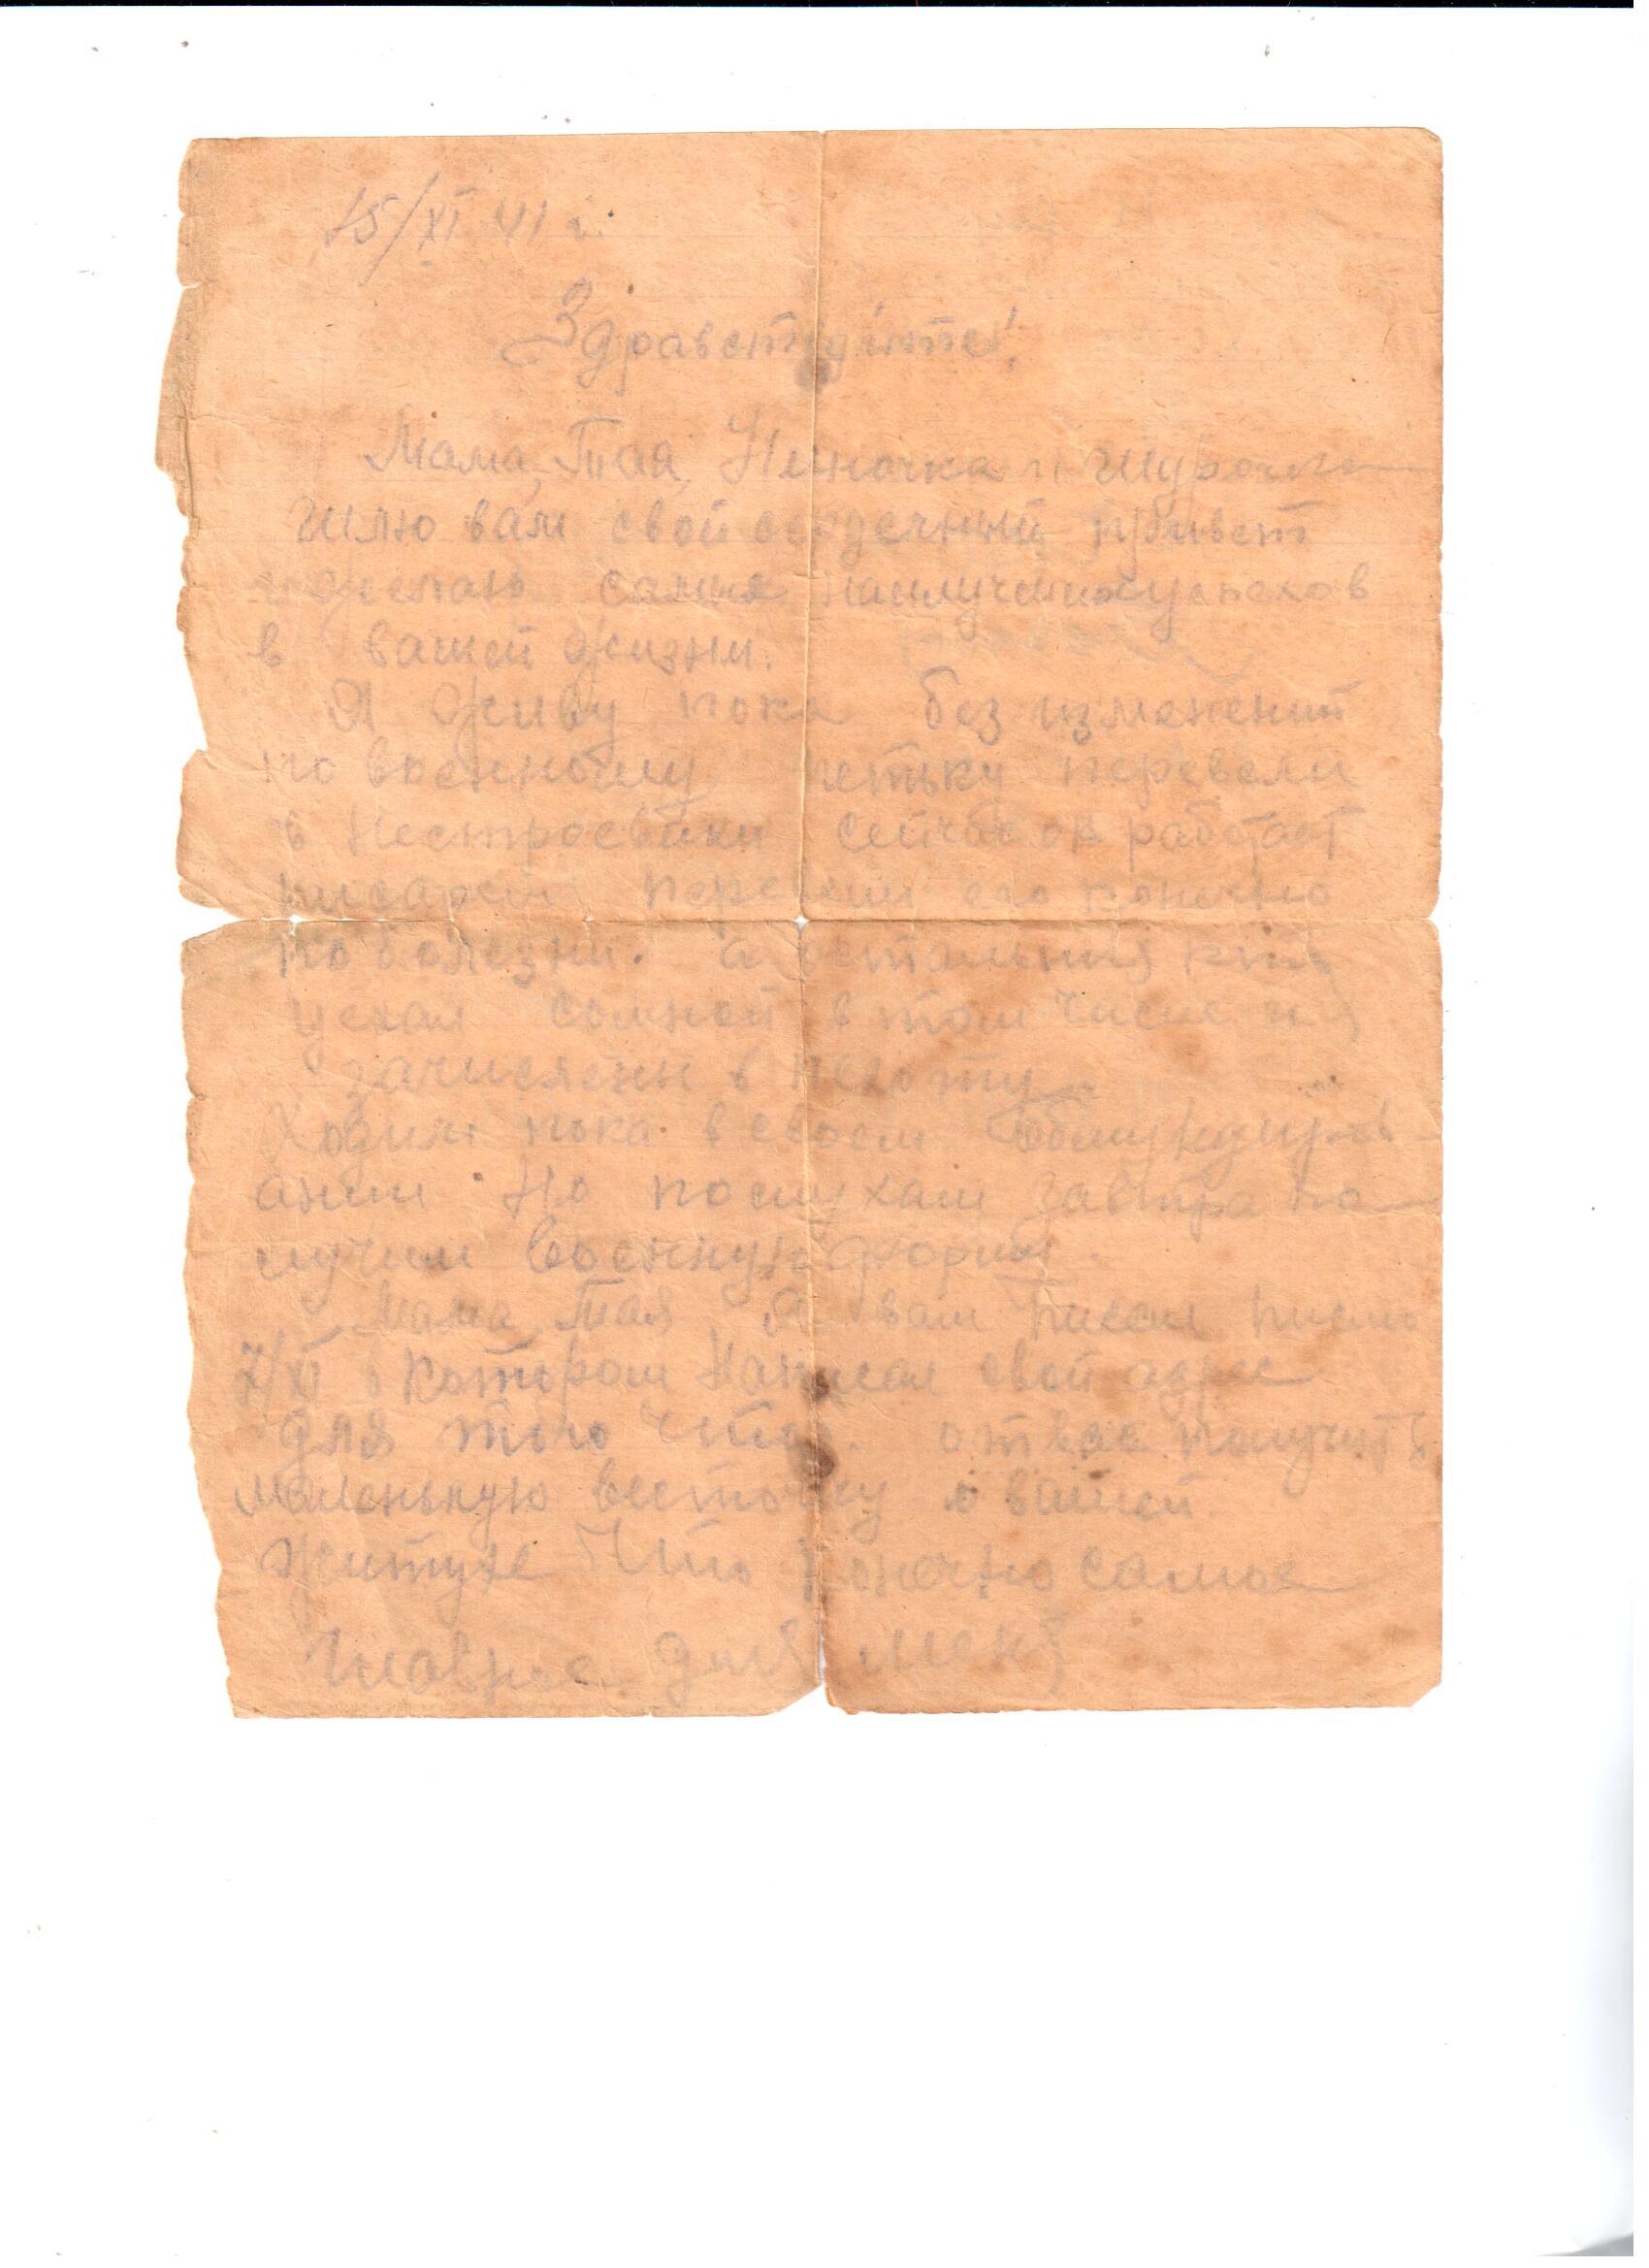 15/XI 41 г.
Здравствуйте!
Мама, Тая, Ниночка и Шурочка
Шлю вам свой сердечный привет
и желаю самых наилучших успехов
в вашей жизни.
Я живу пока без изменений
по военному Петьку перевели
в нестроевики сейчас он работает
писарем перевели его конечно
по болезни. а остальные
уехал сомной в том числе и я
зачислены в пехоту
Ходим пока в своем обмундиров
ании Но по слухам завтра по
лучим военную форму.
Мама, Тая Я вам писал письмо
7/XI в котором написал свой адрес
для того чтоб. от вас получить
маленькую весточку о вашей
житухе Что конечно самое
главное для меня